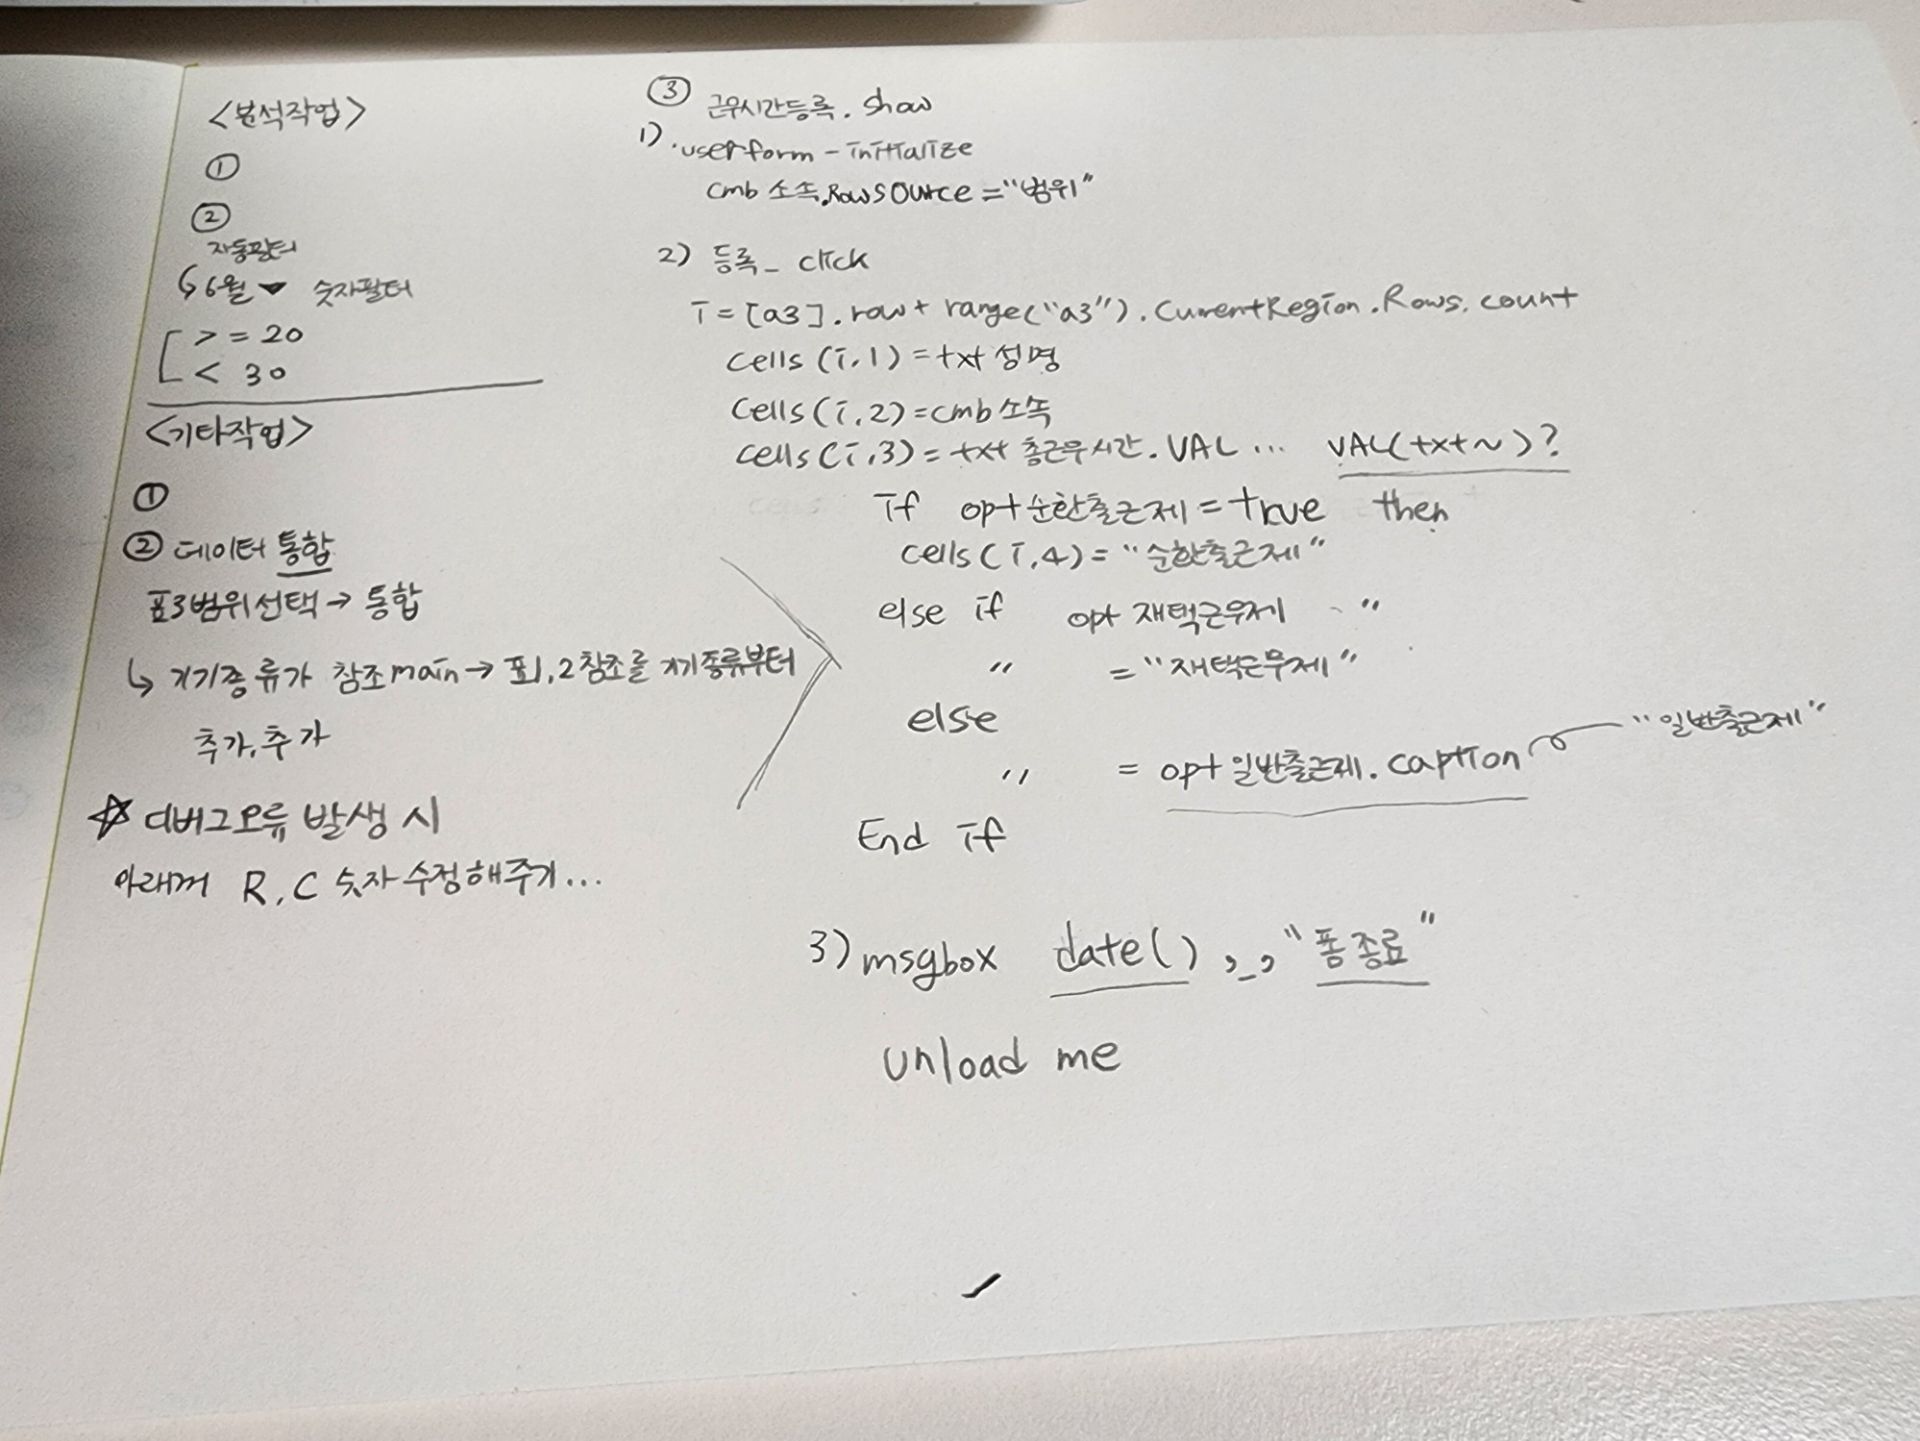 <분석작업>
①
②
자동필터
↳ 6월 ▼ 숫자필터
>= 20
< 30
<기타작업>
①
② 데이터 통합
표3범위선택 → 통합
↳ 기기종류가 참조main → 표1,2참조를 기기종류부터
추가, 추가
☆ 디버그오류 발생 시
아래꺼 R, C 숫자 수정해주기...
③ 근무시간등록. show
1) .userform - initialize
cmb 소속.RowSource = "범위"
2) 등록_ click
i = [a3].row + range("a3").CurrentRegion.Rows.count
cells (i,1) = txt 성명
cells (i,2) = cmb 소속
cells (i,3) = txt 총근무시간. VAL ... VAL(txt~)?
if opt 순환출근제 = true then
cells (i,4) = "순환출근제"
else if opt 재택근무제 "
" = "재택근무제"
else
" = opt 일반출근제. caption "일반출근제"
End if
3) msgbox date() ,_, "폼 종료"
unload me